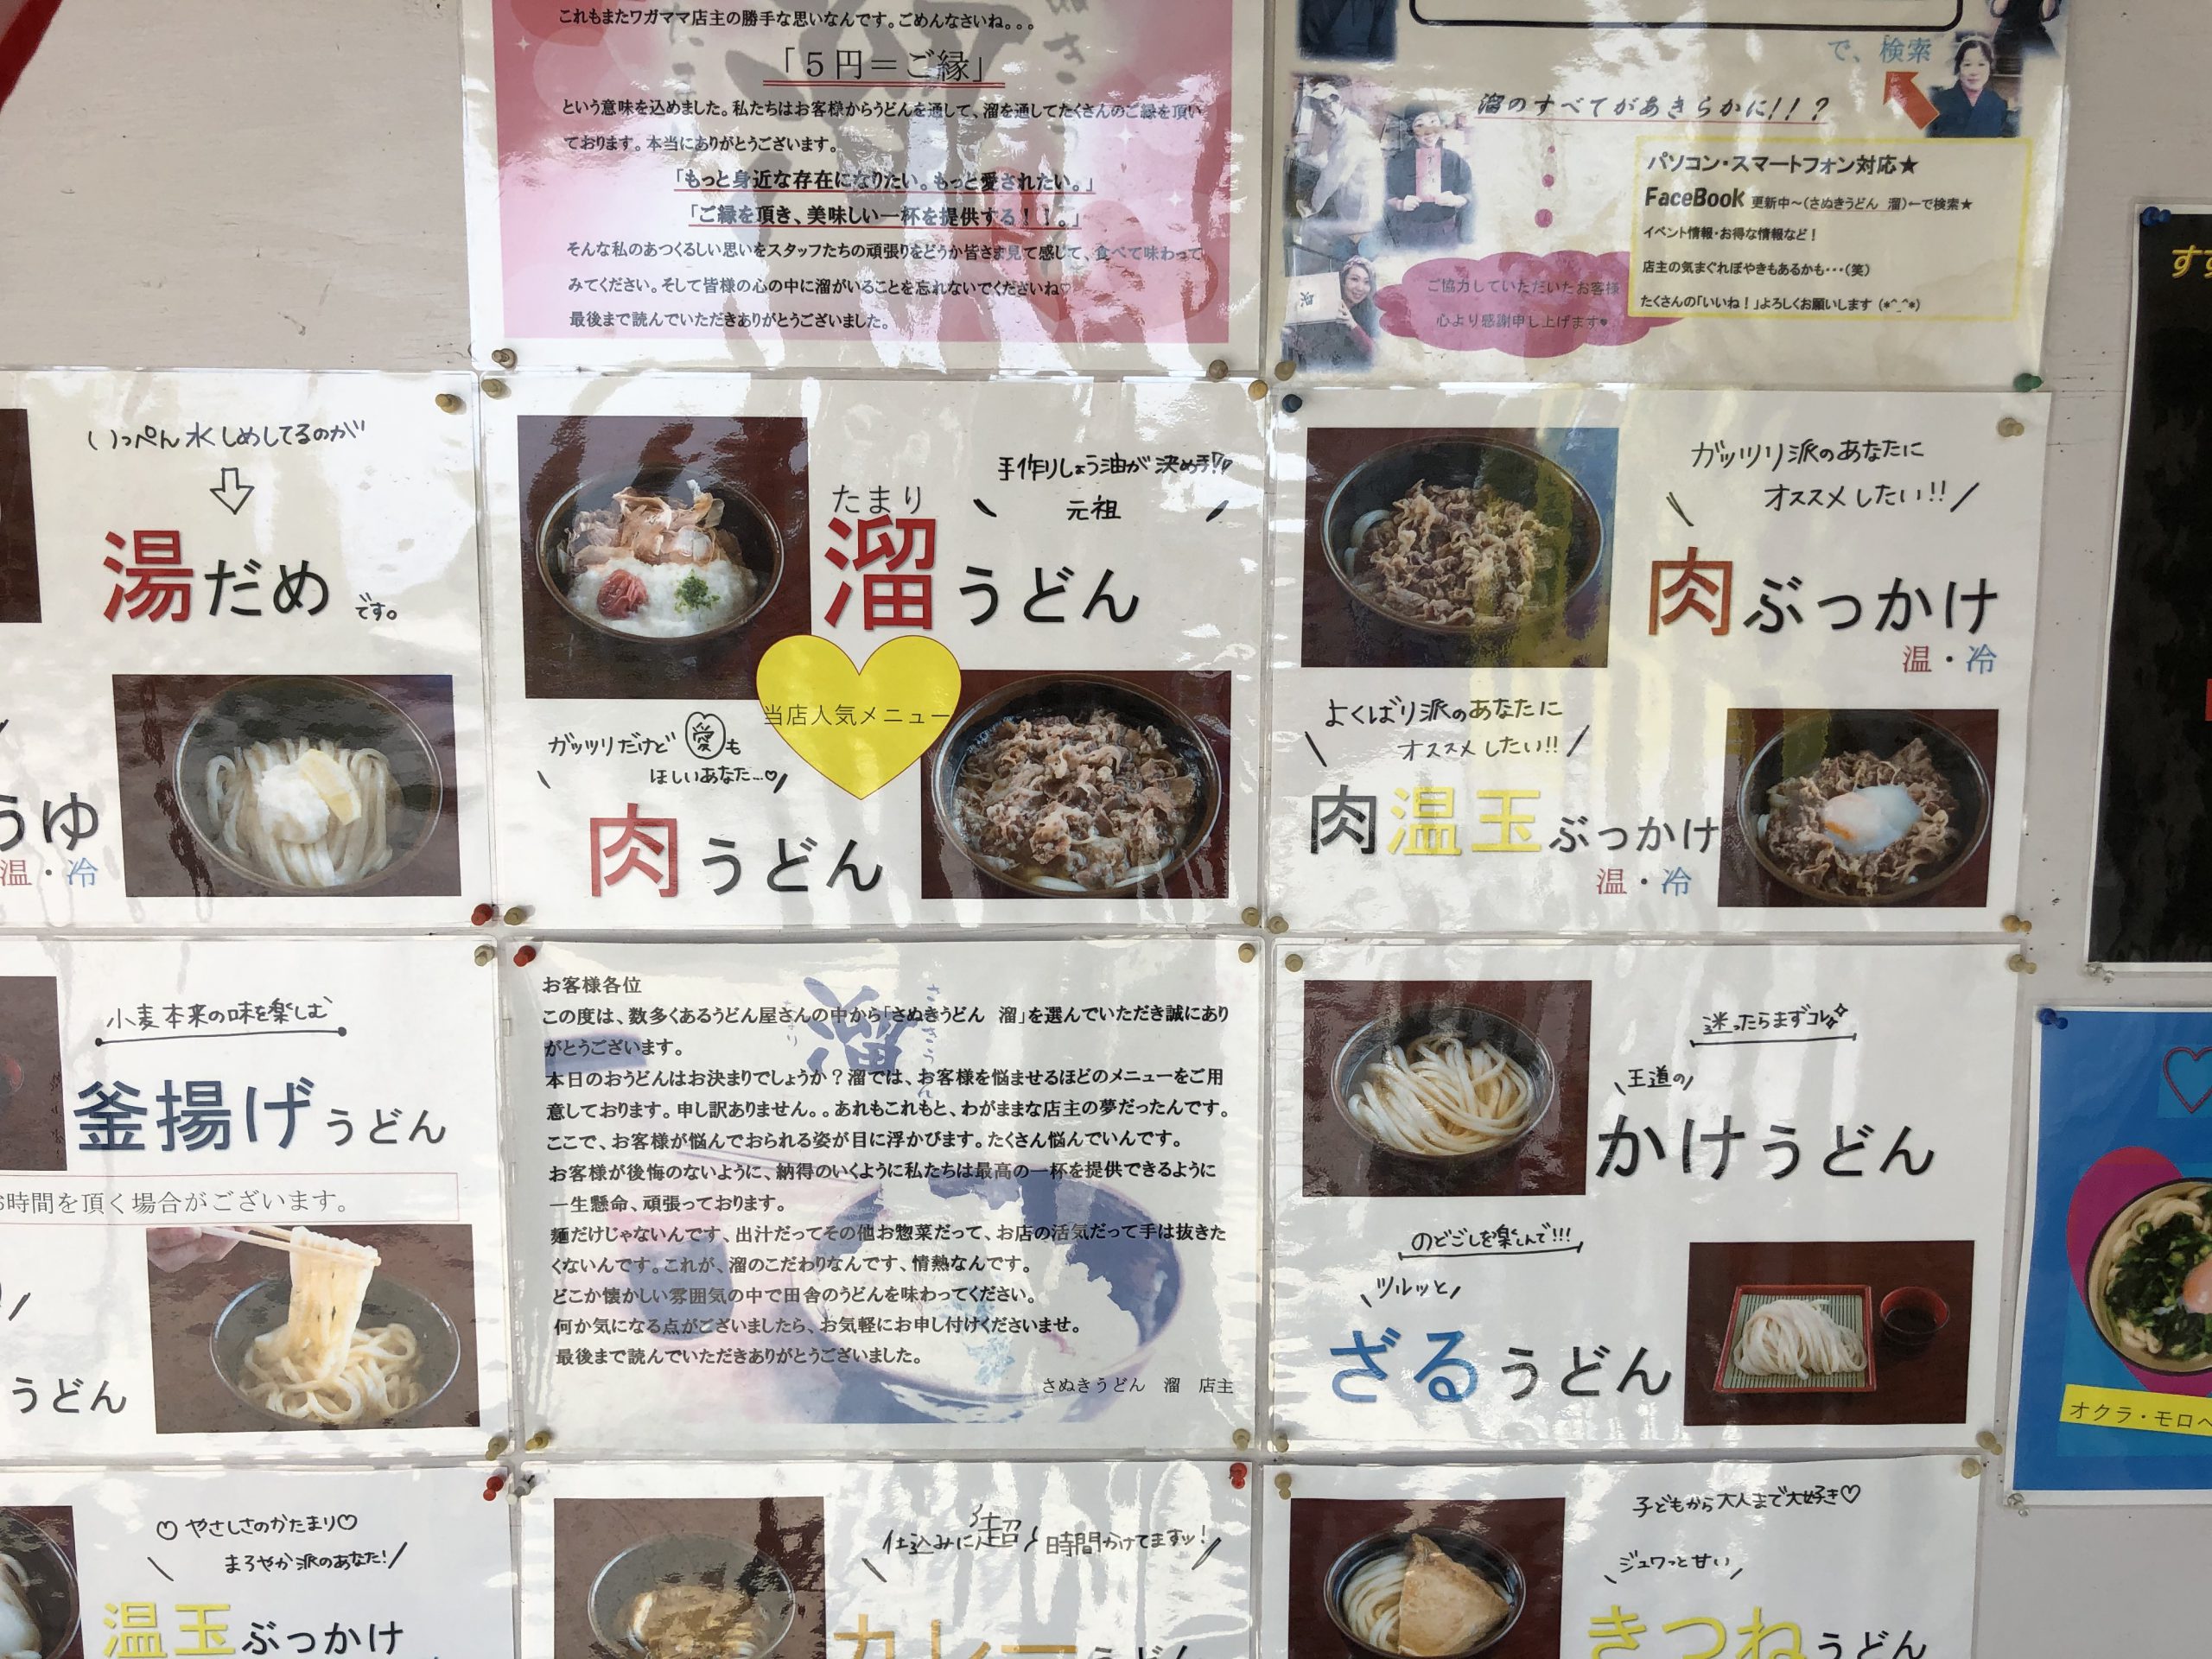 これもまたワガママ店主の勝手な思いなんです。ごめんなさいね。。。
「５円＝ご縁」
という意味を込めました。私たちはお客様からうどんを通して、溜を通してたくさんのご縁を頂い
ております。本当にありがとうございます。
「もっと身近な存在になりたい。もっと愛されたい。」
「ご縁を頂き、美味しい一杯を提供する！！。」
そんな私のあつくるしい思いをスタッフたちの頑張りをどうか皆さま見て感じて、食べて味わって
みてください。そして皆様の心の中に溜がいることを忘れないでくださいね♡
最後まで読んでいただきありがとうございました。
で、検索
溜のすべてがあきらかに!!？
パソコン・スマートフォン対応★
FaceBook 更新中～(さぬきうどん　溜)←で検索★
イベント情報・お得な情報など！
店主の気まぐれぼやきもあるかも・・・(笑)
たくさんの「いいね！」よろしくお願いします (*^_^*)
ご協力していただいたお客様
心より感謝申し上げます♥
いっぺん水しめしてるのが
湯だめです。
うゆ
温・冷
手作りしょう油が決め手!!
元祖
たまり
溜うどん
当店人気メニュー
ガッツリだけど愛も
ほしいあなた…♡
肉うどん
ガッツリ派のあなたに
オススメしたい!!
肉ぶっかけ
温・冷
よくばり派のあなたに
オススメしたい!!
肉温玉ぶっかけ
温・冷
小麦本来の味を楽しむ
釜揚げうどん
時間を頂く場合がございます。
うどん
お客様各位
この度は、数多くあるうどん屋さんの中から「さぬきうどん　溜」を選んでいただき誠にあり
がとうございます。
本日のおうどんはお決まりでしょうか？溜では、お客様を悩ませるほどのメニューをご用
意しております。申し訳ありません。。あれもこれもと、わがままな店主の夢だったんです。
ここで、お客様が悩んでおられる姿が目に浮かびます。たくさん悩んでいんです。
お客様が後悔のないように、納得のいくように私たちは最高の一杯を提供できるように
一生懸命、頑張っております。
麺だけじゃないんです、出汁だってその他お惣菜だって、お店の活気だって手は抜きた
くないんです。これが、溜のこだわりなんです、情熱なんです。
どこか懐かしい雰囲気の中で田舎のうどんを味わってください。
何か気になる点がございましたら、お気軽にお申し付けくださいませ。
最後まで読んでいただきありがとうございました。
さぬきうどん　溜　店主
迷ったらまずコレ
王道の
かけうどん
のどごしを楽しんで!!!
ツルッと
ざるうどん
オクラ・モロヘ
♡やさしさのかたまり♡
まろやか派のあなた!
温玉ぶっかけ
仕込みに超時間かけてますッ!
カレーうどん
子どもから大人まで大好き♡
ジュワっと甘い
きつねうどん